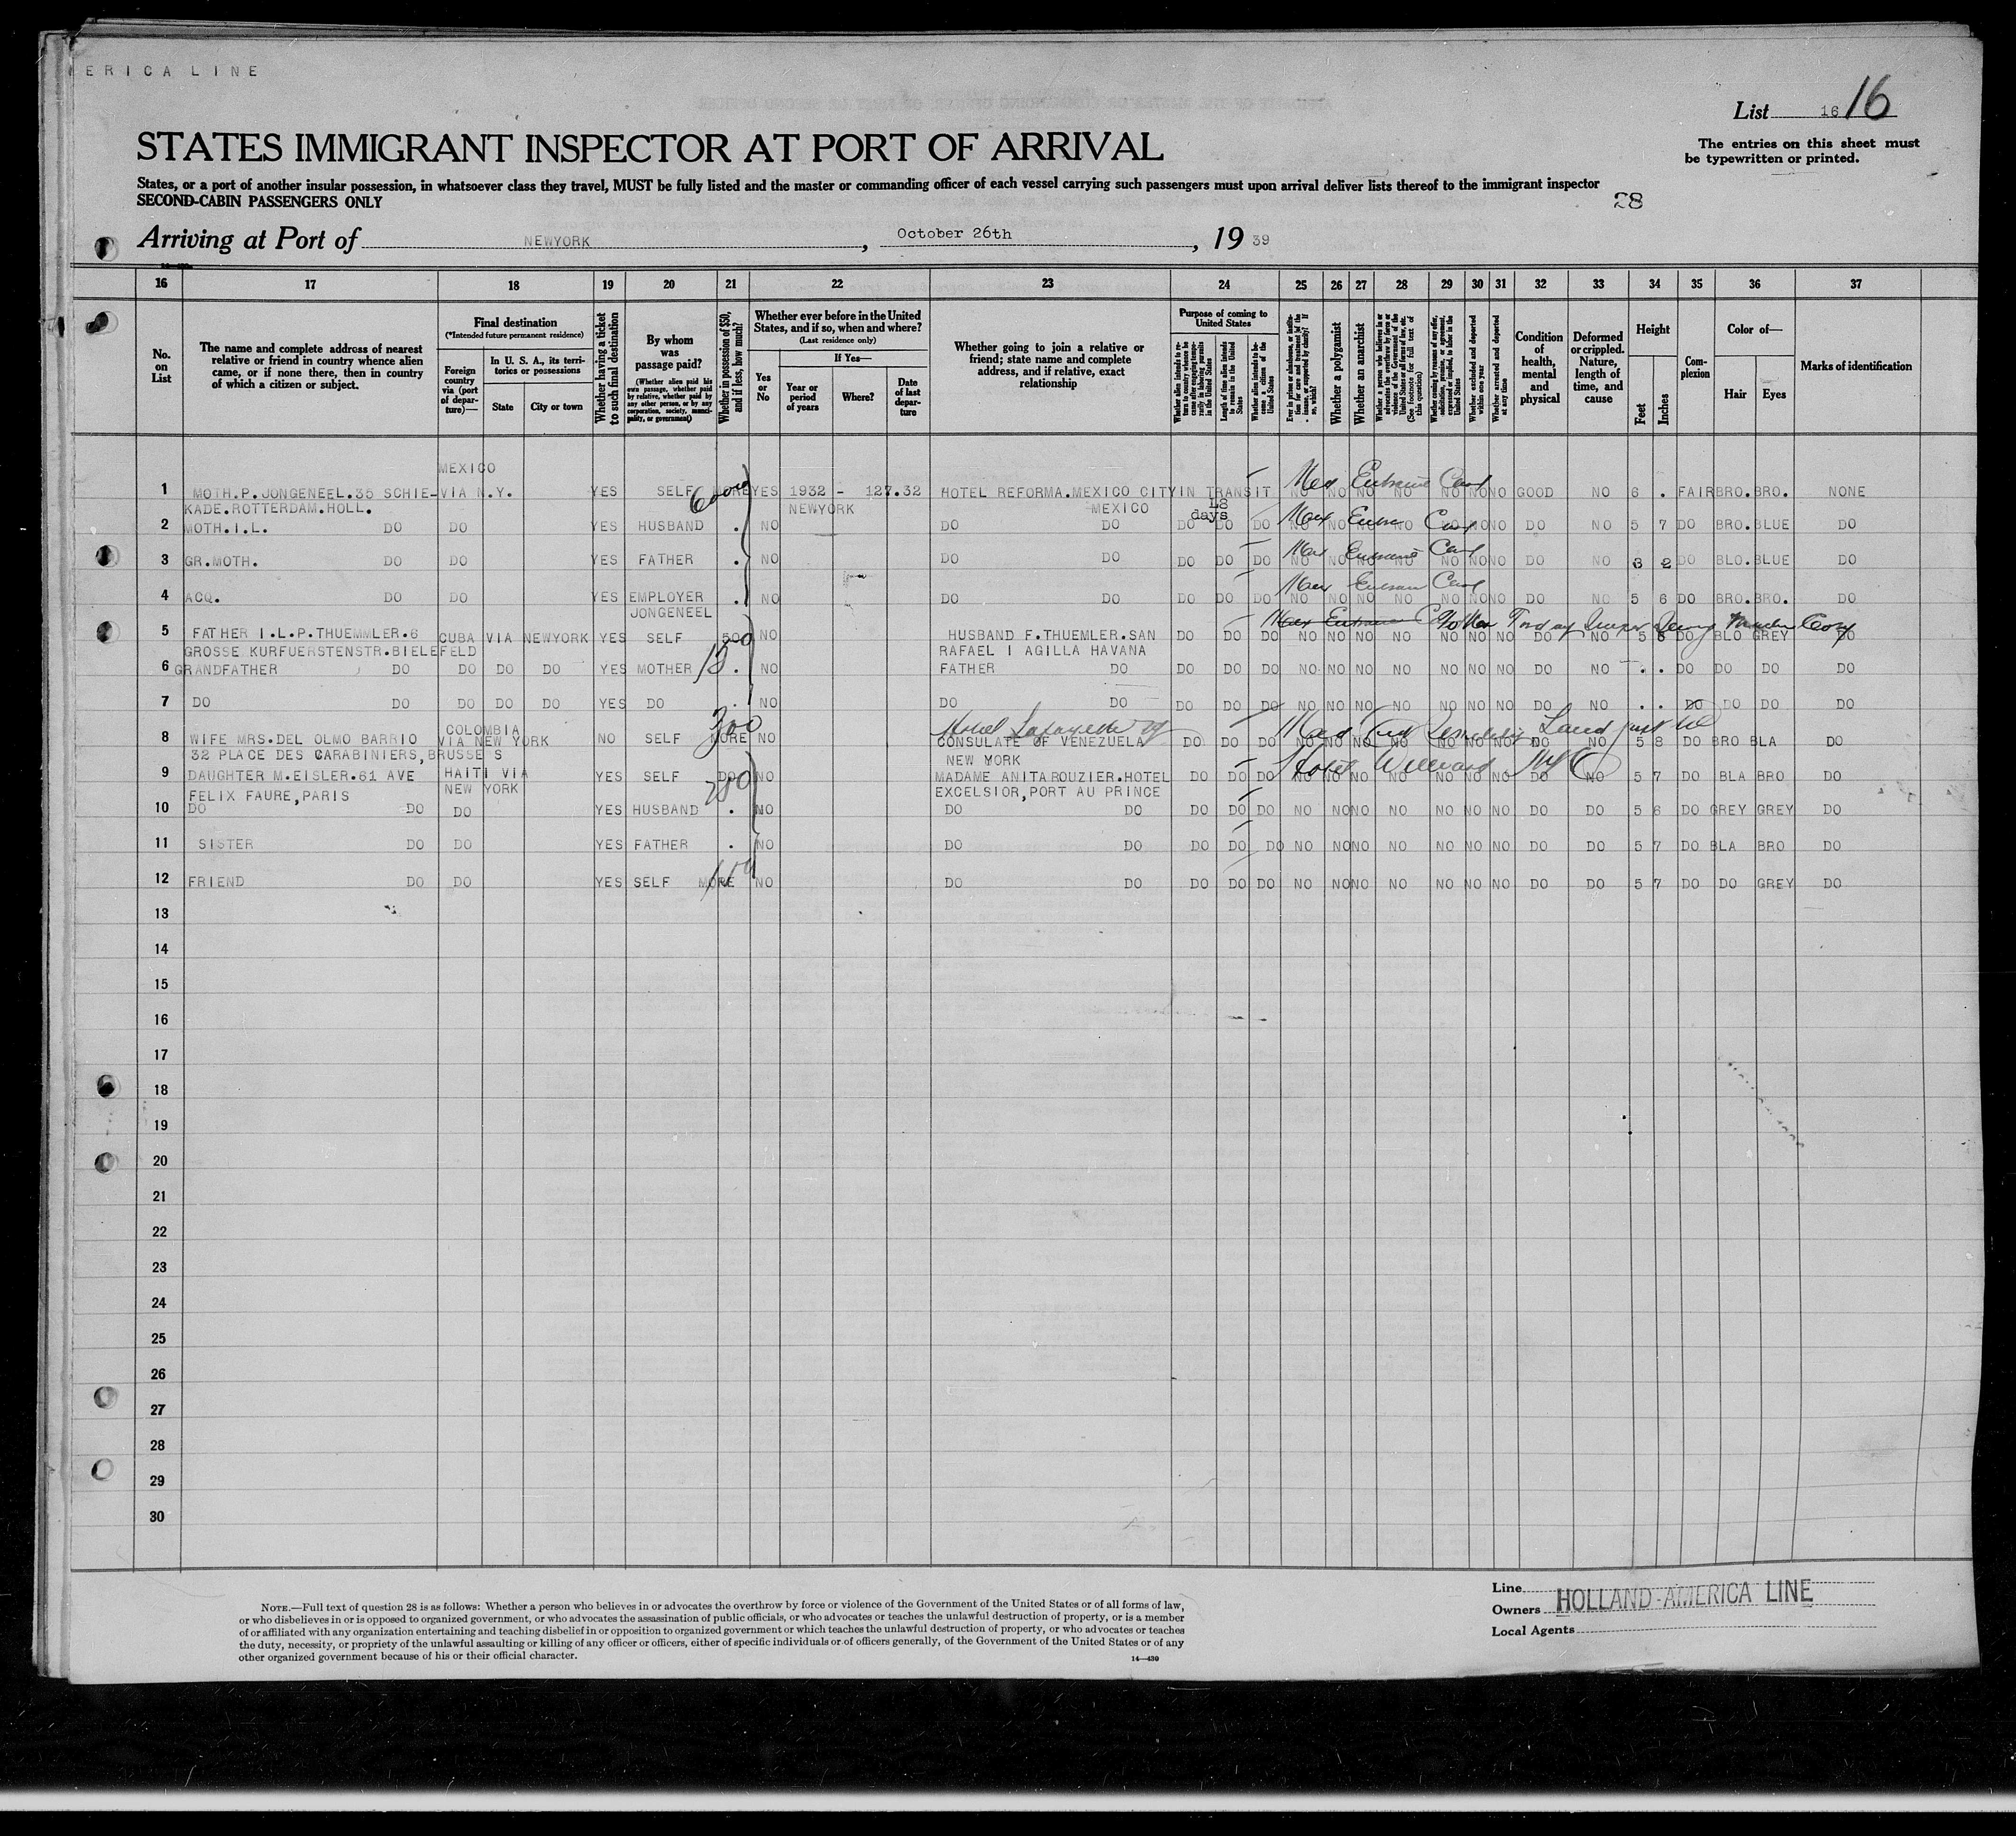 ERICA LINE
List 16 16
STATES IMMIGRANT INSPECTOR AT PORT OF ARRIVAL
The entries on this sheet must
be typewritten or printed.
States, or a port of another insular possession, in whatsoever class they travel, MUST be fully listed and the master or commanding officer of each vessel carrying such passengers must upon arrival deliver lists thereof to the immigrant inspector
SECOND-CABIN PASSENGERS ONLY
28
Arriving at Port of NEWYORK, October 26th, 1939
16 17 18 19 20 21 22 23 24 25 26 27 28 29 30 31 32 33 34 35 36 37
No. on List
The name and complete address of nearest relative or friend in country whence alien came, or if none there, then in country of which a citizen or subject.
Final destination (*Intended future permanent residence)
Foreign country via (port of departure)—
In U. S. A., its territories or possessions
State
City or town
Whether having a ticket to such final destination
By whom was passage paid?
(Whether alien paid his own passage, whether paid by relative, whether paid by any other person, or by any corporation, society, municipality, or government)
Whether in possession of $50, and if less, how much?
Whether ever before in the United States, and if so, when and where?
(Last residence only)
Yes or No
If Yes—
Year or period of years
Where?
Date of last departure
Whether going to join a relative or friend; state name and complete address, and if relative, exact relationship
Purpose of coming to United States
Length of time alien intends to remain in the United States
Whether alien intends to become a citizen of the United States
Whether a polygamist
Whether an anarchist
(See footnote for full text of this question)
Whether excluded and deported within one year
Whether arrested and deported at any time
Condition of health, mental and physical
Deformed or crippled. Nature, length of time, and cause
Height
Feet
Inches
Complexion
Color of—
Hair
Eyes
Marks of identification
MEXICO
1 MOTH.P.JONGENEEL.35 SCHIE- VIA N.Y. YES SELF MORE YES 1932 - 127.32 HOTEL REFORMA.MEXICO CITY IN TRANSIT NO NO NO NO NO NO NO GOOD NO 6 . FAIR BRO. BRO. NONE
KADE.ROTTERDAM.HOLL. NEWYORK MEXICO 48 days
2 MOTH.I.L. DO DO YES HUSBAND . NO DO DO DO DO DO NO NO NO NO NO NO NO DO NO 5 7 DO BRO. BLUE DO
3 GR.MOTH. DO DO YES FATHER . NO DO DO DO DO DO NO NO NO NO NO NO NO DO NO 3 2 DO BLO. BLUE DO
4 ACQ. DO DO YES EMPLOYER . NO DO DO DO DO DO NO NO NO NO NO NO NO DO NO 5 6 DO BRO. BRO. DO
JONGENEEL
5 FATHER I.L.P.THUEMMLER.6 CUBA VIA NEWYORK YES SELF 500 NO HUSBAND F.THUEMLER.SAN DO DO DO NO NO NO NO NO NO NO DO NO 5 6 DO BLO GREY DO
GROSSE KURFUERSTENSTR.BIELEFELD RAFAEL I AGILLA HAVANA
6 GRANDFATHER DO DO DO DO YES MOTHER . NO FATHER DO DO DO DO NO NO NO NO NO NO NO DO NO . . DO DO DO DO
7 DO DO DO DO DO YES DO . NO DO DO DO DO DO NO NO NO NO NO NO NO DO NO . . DO DO DO DO
COLOMBIA 300 Hotel Lafayette
8 WIFE MRS.DEL OLMO BARRIO VIA NEW YORK NO SELF MORE NO CONSULATE OF VENEZUELA DO DO DO NO NO NO NO NO NO NO DO NO 5 8 DO BRO BLA DO
32 PLACE DES CARABINIERS,BRUSSE S NEW YORK
9 DAUGHTER M.EISLER.61 AVE HAITI VIA YES SELF DO NO MADAME ANITA ROUZIER.HOTEL DO DO DO NO NO NO NO NO NO NO DO NO 5 7 DO BLA BRO DO
FELIX FAURE,PARIS NEW YORK EXCELSIOR,PORT AU PRINCE
10 DO DO DO YES HUSBAND . NO DO DO DO DO DO NO NO NO NO NO NO NO DO DO 5 6 DO GREY GREY DO
11 SISTER DO DO YES FATHER . NO DO DO DO DO DO NO NO NO NO NO NO NO DO DO 5 7 DO BLA BRO DO
12 FRIEND DO DO YES SELF MORE NO DO DO DO DO DO NO NO NO NO NO NO NO DO DO 5 7 DO DO GREY DO
13
14
15
16
17
18
19
20
21
22
23
24
25
26
27
28
29
30
NOTE.—Full text of question 28 is as follows: Whether a person who believes in or advocates the overthrow by force or violence of the Government of the United States or of all forms of law,
or who disbelieves in or is opposed to organized government, or who advocates the assassination of public officials, or who advocates or teaches the unlawful destruction of property, or is a member
of or affiliated with any organization entertaining and teaching disbelief in or opposition to organized government or which teaches the unlawful destruction of property, or who advocates or teaches
the duty, necessity, or propriety of the unlawful assaulting or killing of any officer or officers, either of specific individuals or of officers generally, of the Government of the United States or of any
other organized government because of his or their official character.
14—430
Line
Owners HOLLAND-AMERICA LINE
Local Agents